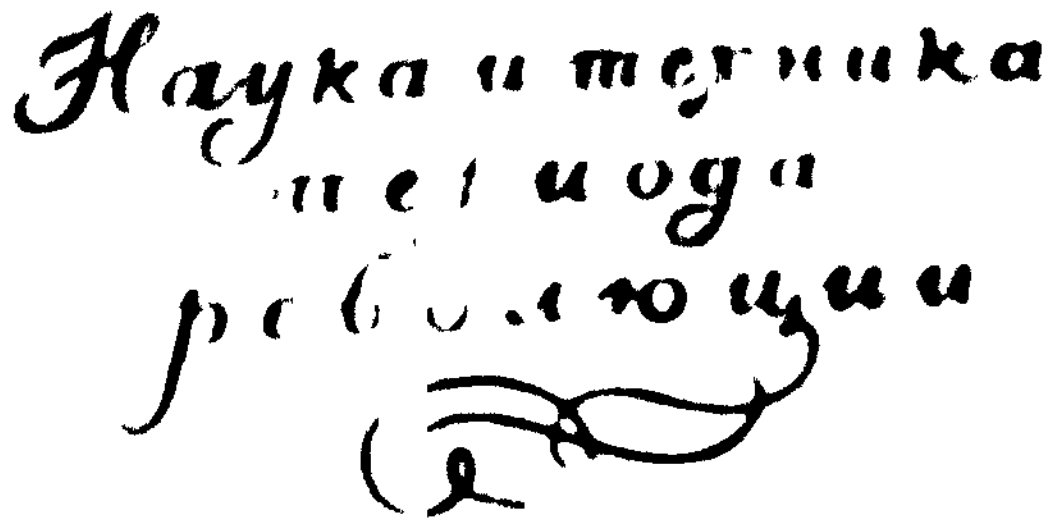 Наука и техника
периода
революции